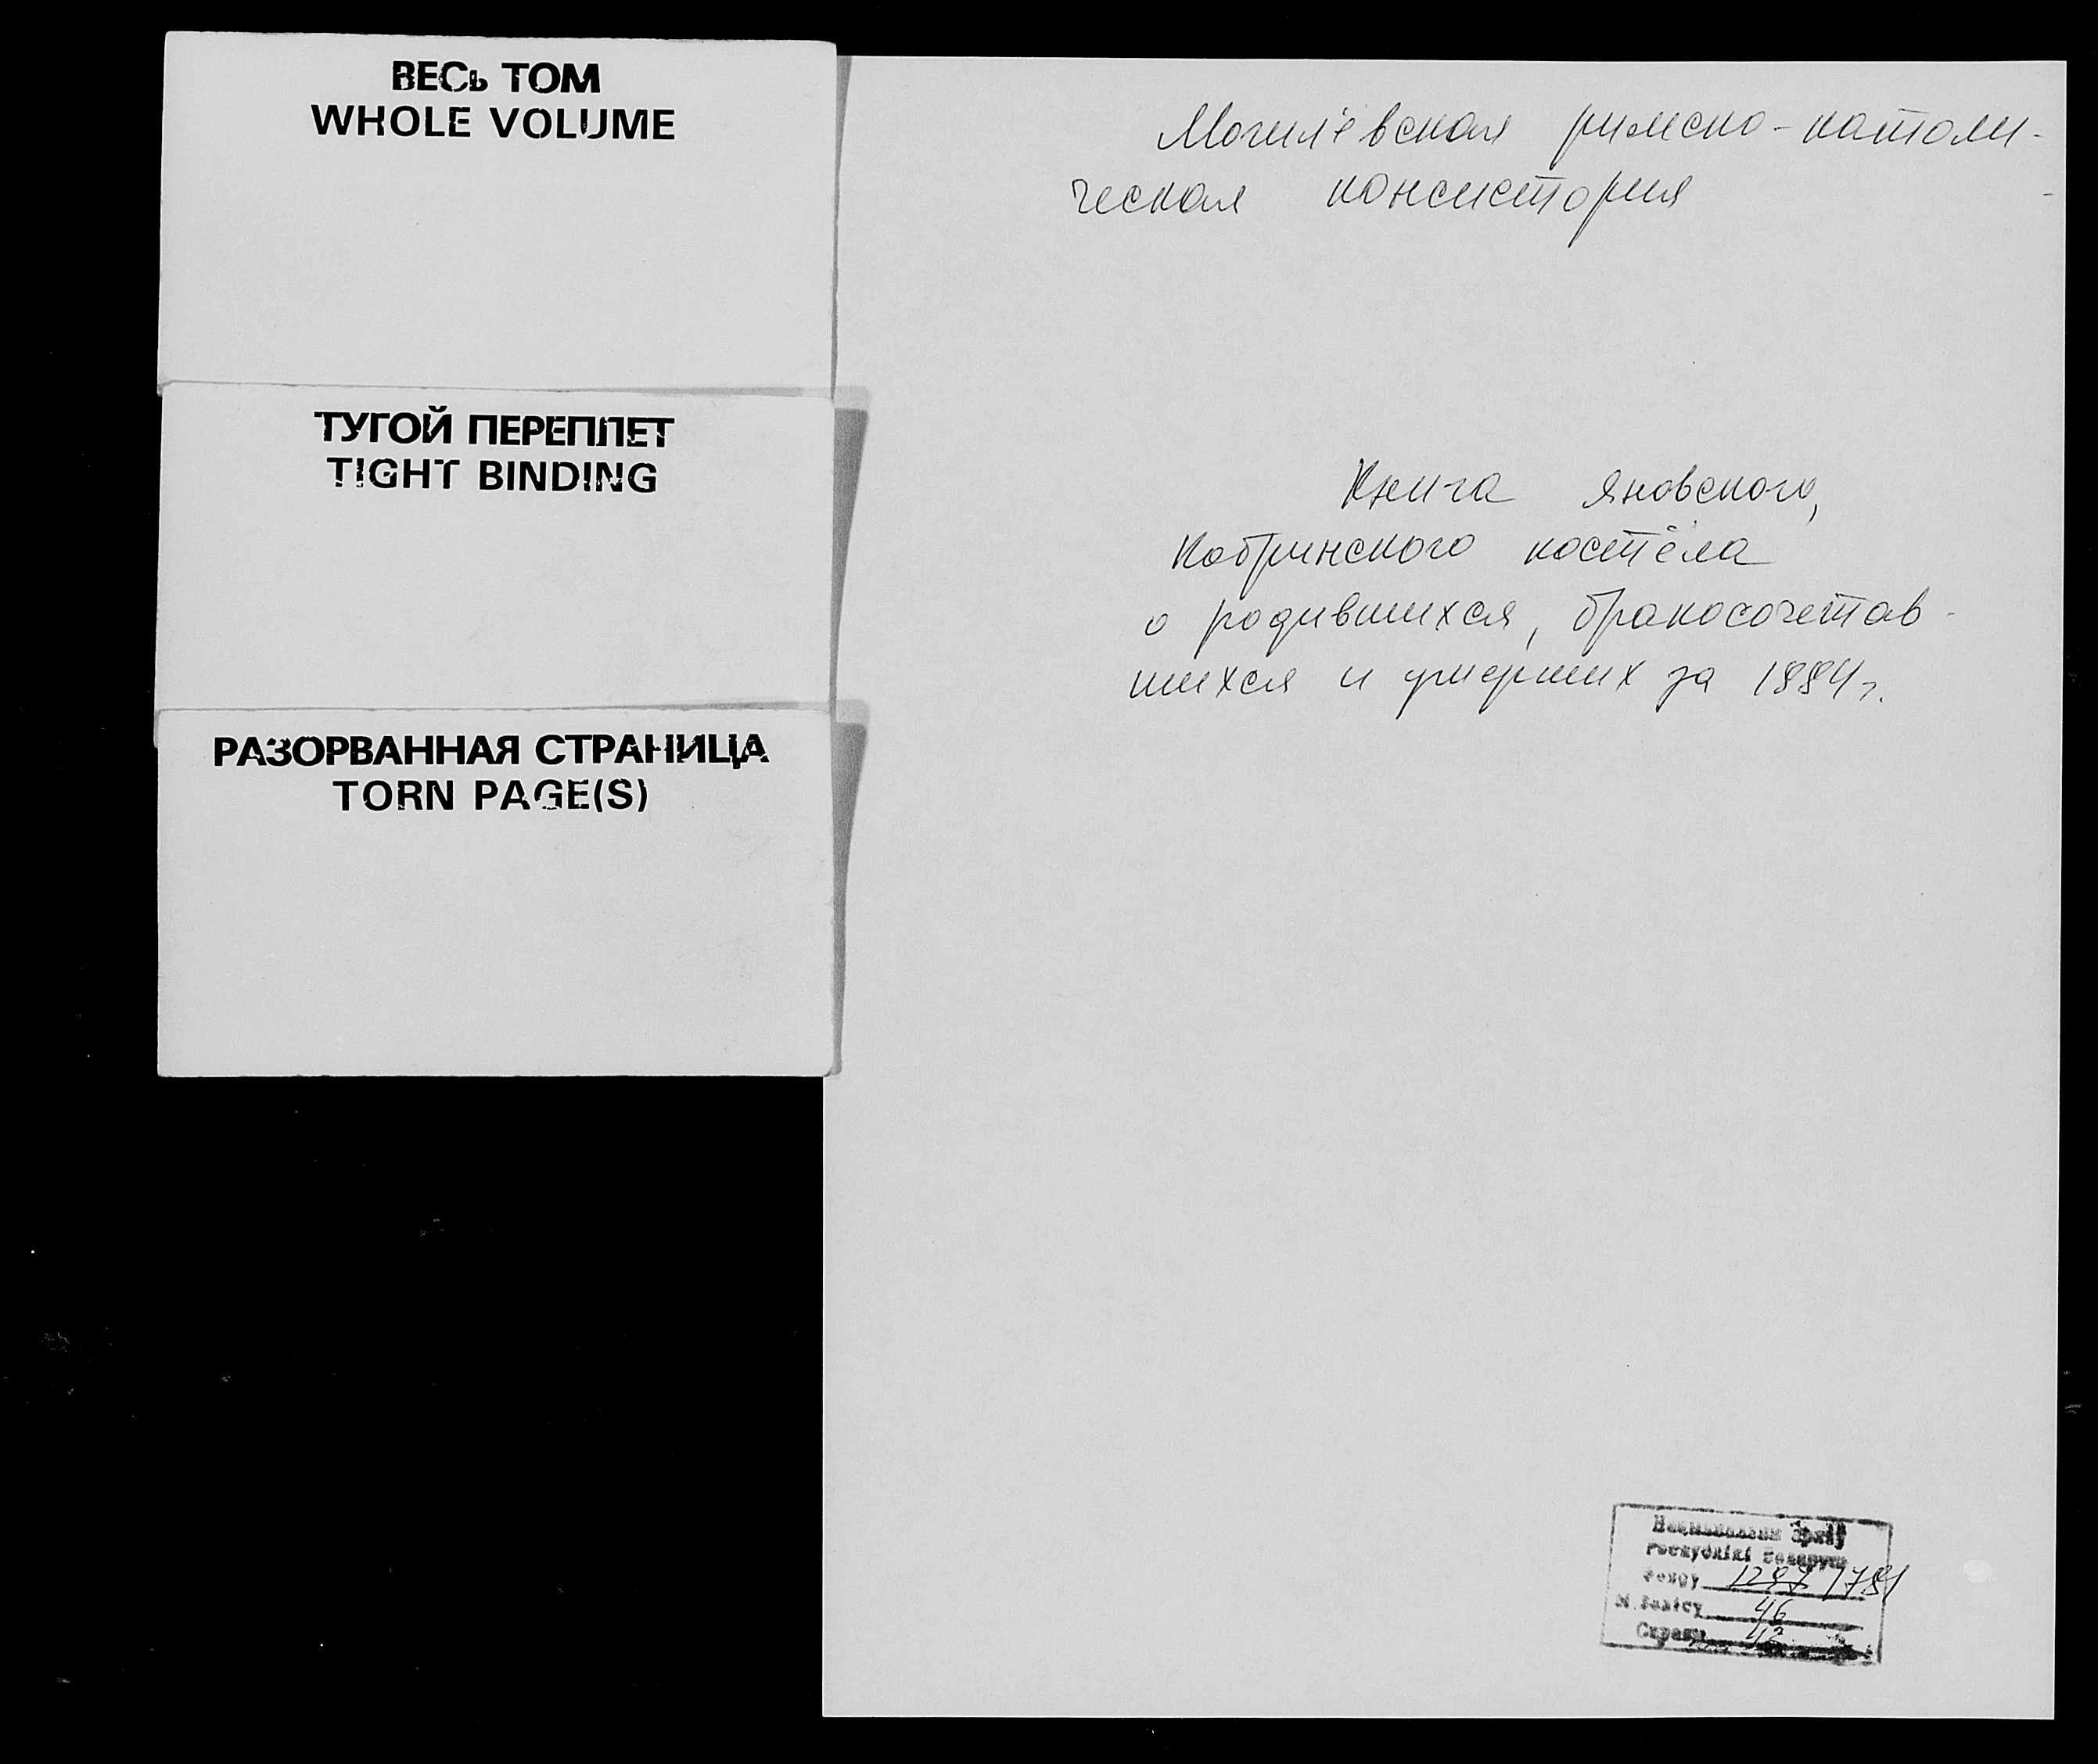 ВЕСЬ ТОМ
WHOLE VOLUME
ТУГОЙ ПЕРЕПЛЕТ
TIGHT BINDING
РАЗОРВАННАЯ СТРАНИЦА
TORN PAGE(S)
Могилёвская римско-католи-
ческая консистория
Книга Яновского,
Кобринского костёла
о родившихся, бракосочетав-
шихся и умерших за 1884 г.
Фонду 1781
46
Справа 42